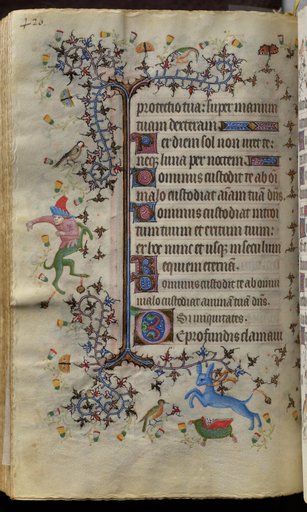 420.
protectio tua: super manum
tuam dexteram
Per diem sol non uret te:
neq; luna per noctem.
Dominus custodit te ab oi
malo custodiat aĩam tuã dñs.
Dominus custodiat introi
tum tuum et exitum tuum:
ex hoc nunc et usq; in seculum
Requiem eternã.
Dominus custodit te ab omni
malo custodiat animã tuã dñs.
Si iniquitates.
De profundis clamaui